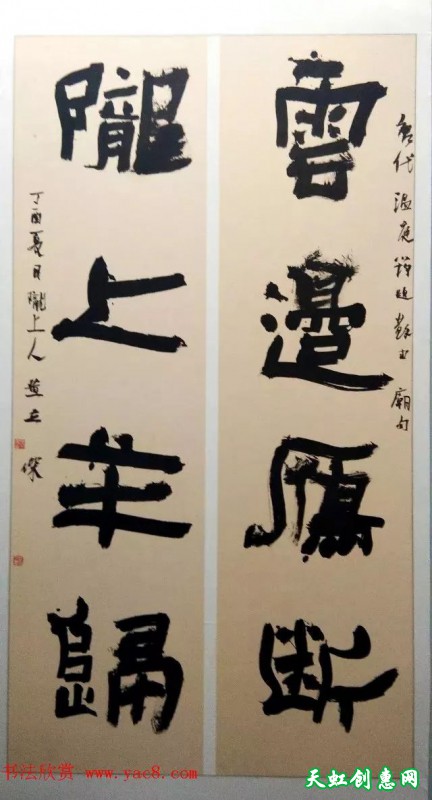 唐代温庭筠題蘇武廟句
雲邊鴈断
隴上羊歸
丁酉夏月隴上人
书法欣赏 www.yac8.com
天虹创意网